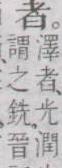 者。
澤者、光潤
謂之銑、晉